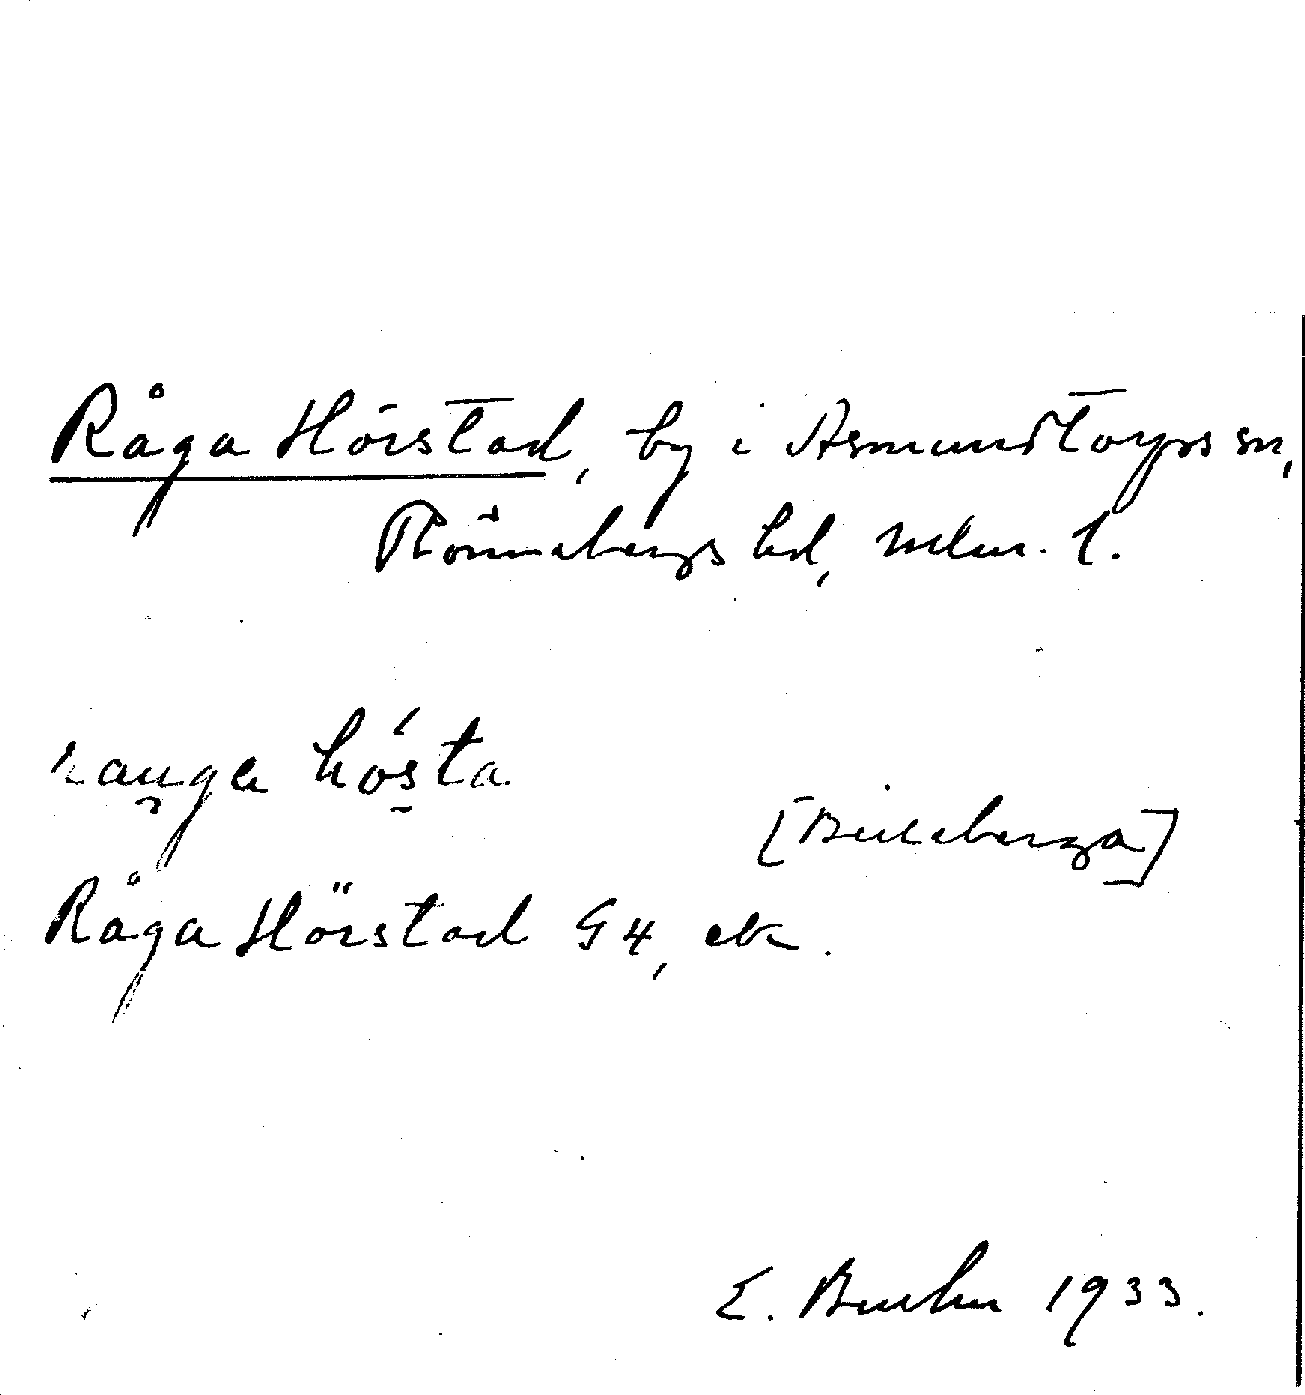 Råga Hörstad, by i Asmundtorps sn,
Rönnebergs hd, Mlm. l.
rau̯ga hö́sta
[Billeberga]
Råga Hörstad G4, ek.
E. Bruhn 1933.